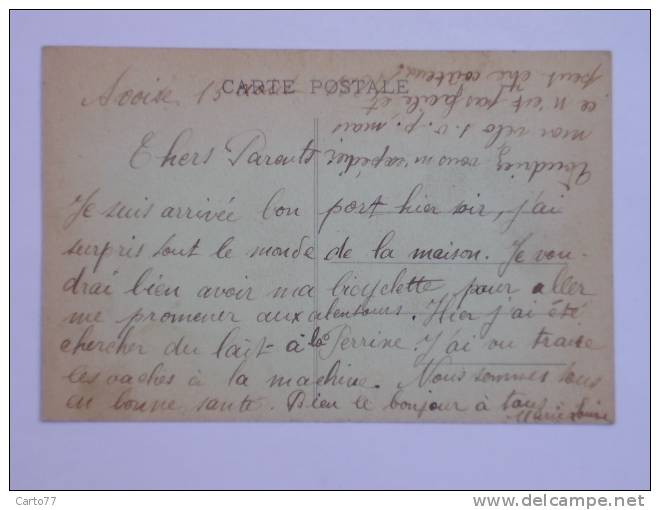 CARTE POSTALE
Avoise 13
Chers Parents
Je suis arrivée bon port hier soir, j'ai
surpris tout le monde de la maison. Je vou-
drai bien avoir ma bicyclette, pour aller
me promener aux alentours. Hier j'ai été
chercher du lait à la Perrine. J'ai vu traire
les vaches à la machine. Nous sommes tous
en bonne santé. Bien le bonjour à tous
Marie Louise
Voudriez vous m'expédier
mon vélo s.v.p., mais
ce n'est pas facile et
peut être coûteux.
Carto77
www.delcampe.net